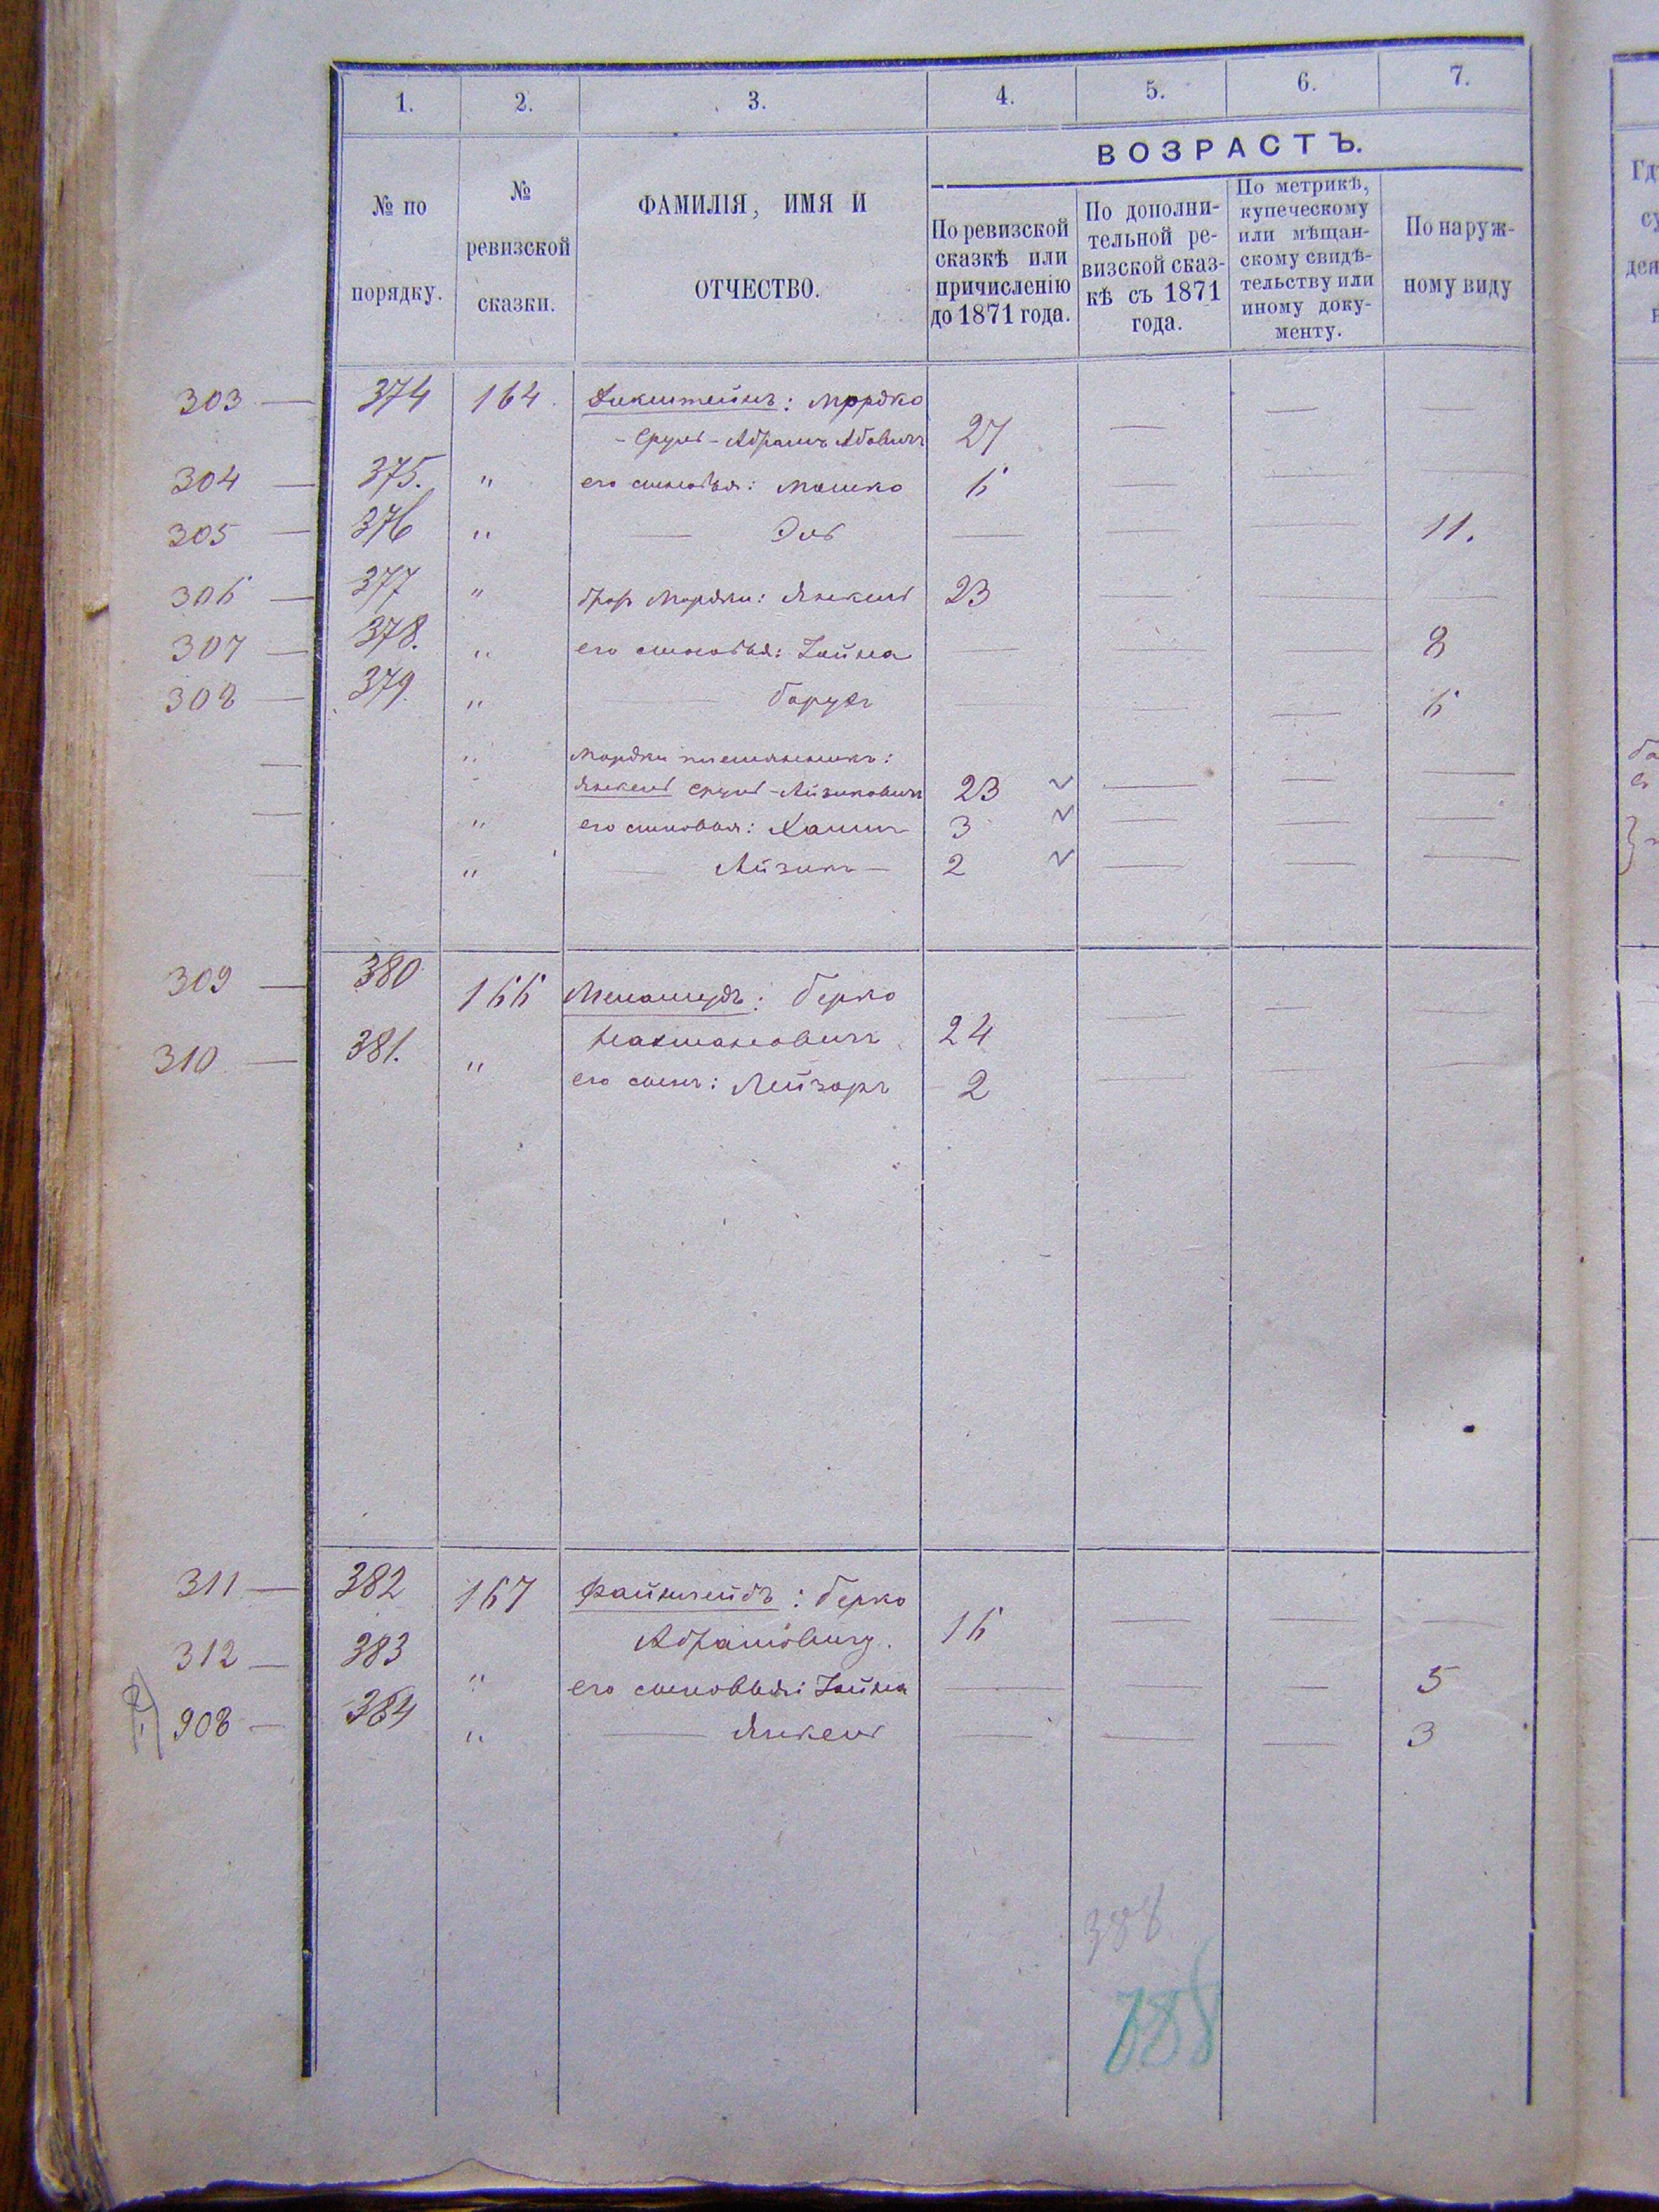 1. 2. 3. 4. 5. 6. 7.
ВОЗРАСТЪ.
№ по
порядку.
№
ревизской
сказки.
ФАМИЛІЯ, ИМЯ И
ОТЧЕСТВО.
По ревизской
сказкѣ или
причисленію
до 1871 года.
По дополни-
тельной ре-
визской сказ-
кѣ съ 1871
года.
По метрикѣ,
купеческому
или мѣщан-
скому свидѣ-
тельству или
иному доку-
менту.
По наруж-
ному виду
303 — 374 164 Дикштейнъ: Мордко — —
- Сруль - Абрамъ Абовичъ 27 —
304 — 375. " его сыновья: Мошко 6 — — —
305 — 376 " — Эль — — — 11.
306 — 377 " братъ Мордки: Янкель 23 — — —
307 — 378. " его сыновья: Хайна — — — 8
308 — 379. " — Борухъ — — — 6
— " Мордки племянникъ:
Янкель Сруль-Айзиковичъ 23 — — —
— " его сыновья: Хаимъ 3 — — —
— " — Айзикъ — 2 — — —
309 — 380 166 Менашудъ: Берко — — —
Нахмановичъ 24
310 — 381. " его сынъ: Лейзоръ 2 — — —
311 — 382 167 Файнлейбъ: Берко — — —
Абрамовичъ. 16
312 — 383 " его сыновья: Хайна — — — 5
908 — 384 " — Янкель — — — 3
388
188